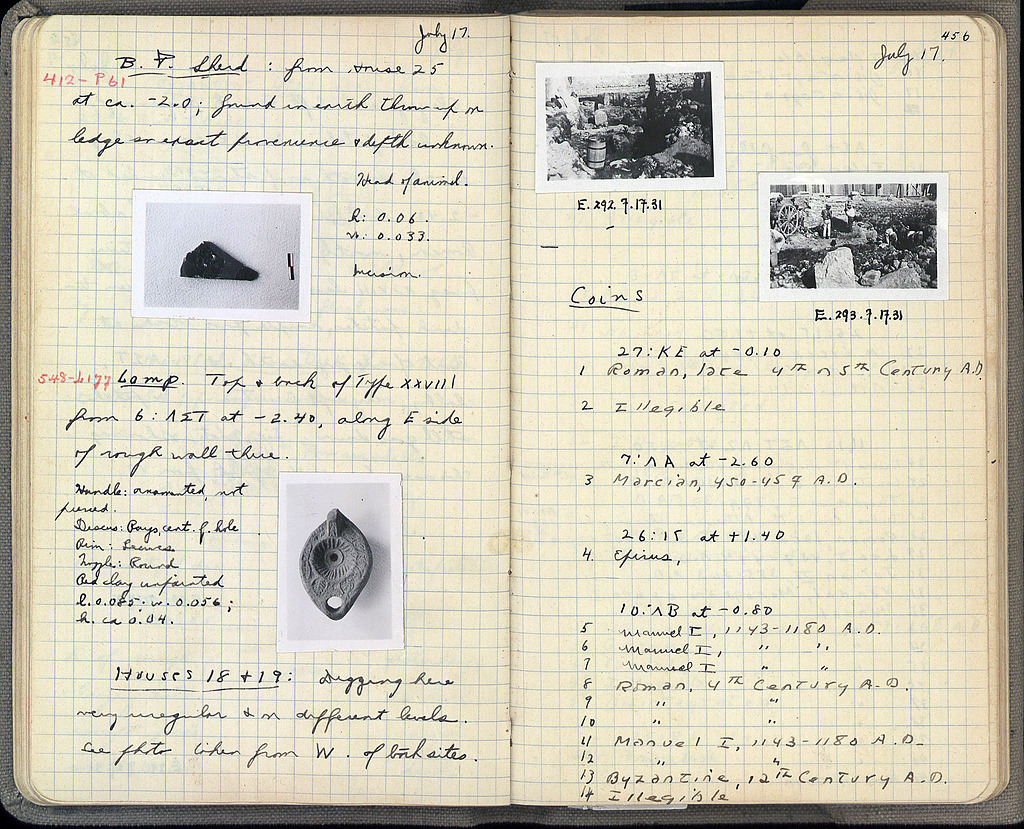 July 17.
B. F. Sherd : from House 25
412-P61
at ca. -2.0; found in earth thrown up on
ledge so exact provenience & depth unknown.
Head of animal.
l: 0.06.
w: 0.033.
Incision.
548-L177 Lamp. Top & back of Type XXVIII
from 6: ΛΣΤ at -2.40, along E side
of rough wall there.
Handle: ornamented, not
pierced.
Discus: Rays, cent. f. hole
Rim: Leaves
Nozzle: Round
Red clay unpainted
l. 0.085; w. 0.056;
h. ca 0.04.
Houses 18 & 19: Digging here
very irregular & on different levels.
See photo taken from W. of both sites.
456
July 17.
E. 292. 7.17.31
E. 293. 7.17.31
Coins
27: KE at -0.10
1 Roman, late 4th or 5th Century A.D.
2 Illegible
7: ΛA at -2.60
3 Marcian, 450-457 A.D.
26: at +1.40
4. Epirus,
10: ΛB at -0.80
5 Manuel I, 1143-1180 A.D.
6 Manuel I, " "
7 Manuel I " "
8 Roman, 4th Century A.D.
9 " "
10 " "
11 Manuel I, 1143-1180 A.D.
12 " "
13 Byzantine, 12th Century A.D.
14 Illegible